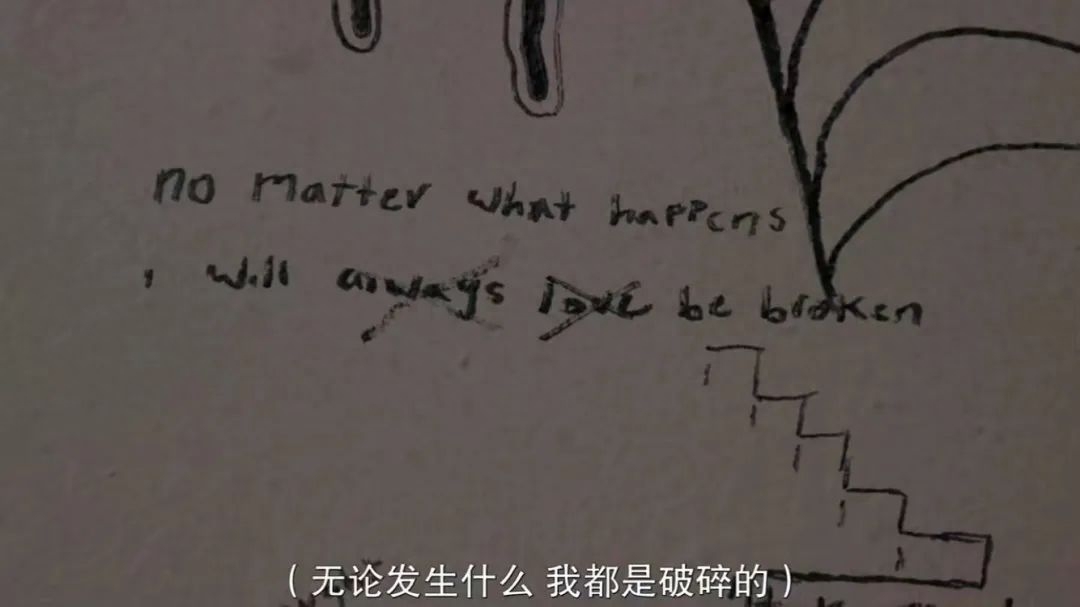 no matter what happens
i will always love be broken
(无论发生什么 我都是破碎的)